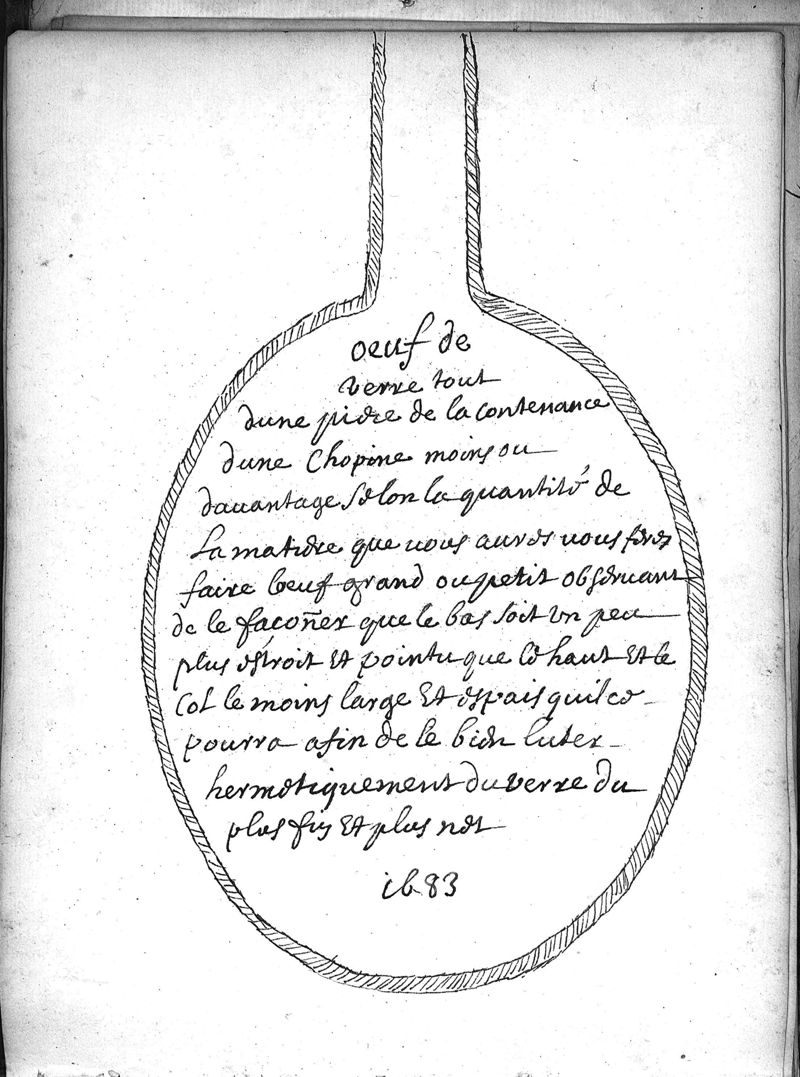 oeuf de
verre tout
dune piece de la contenance
dune Chopine moins ou
dauantage selon la quantité de
La matiere que uous aures uous feres
faire loeuf grand ou petit obseruant
de le façoñer que le bas soit vn peu
plus estroit Et pointu que le haut Et le
Col le moins large Et espais quil ce
pourra afin de le bien luter
hermetiquement du verre du
plus fin Et plus net
1683